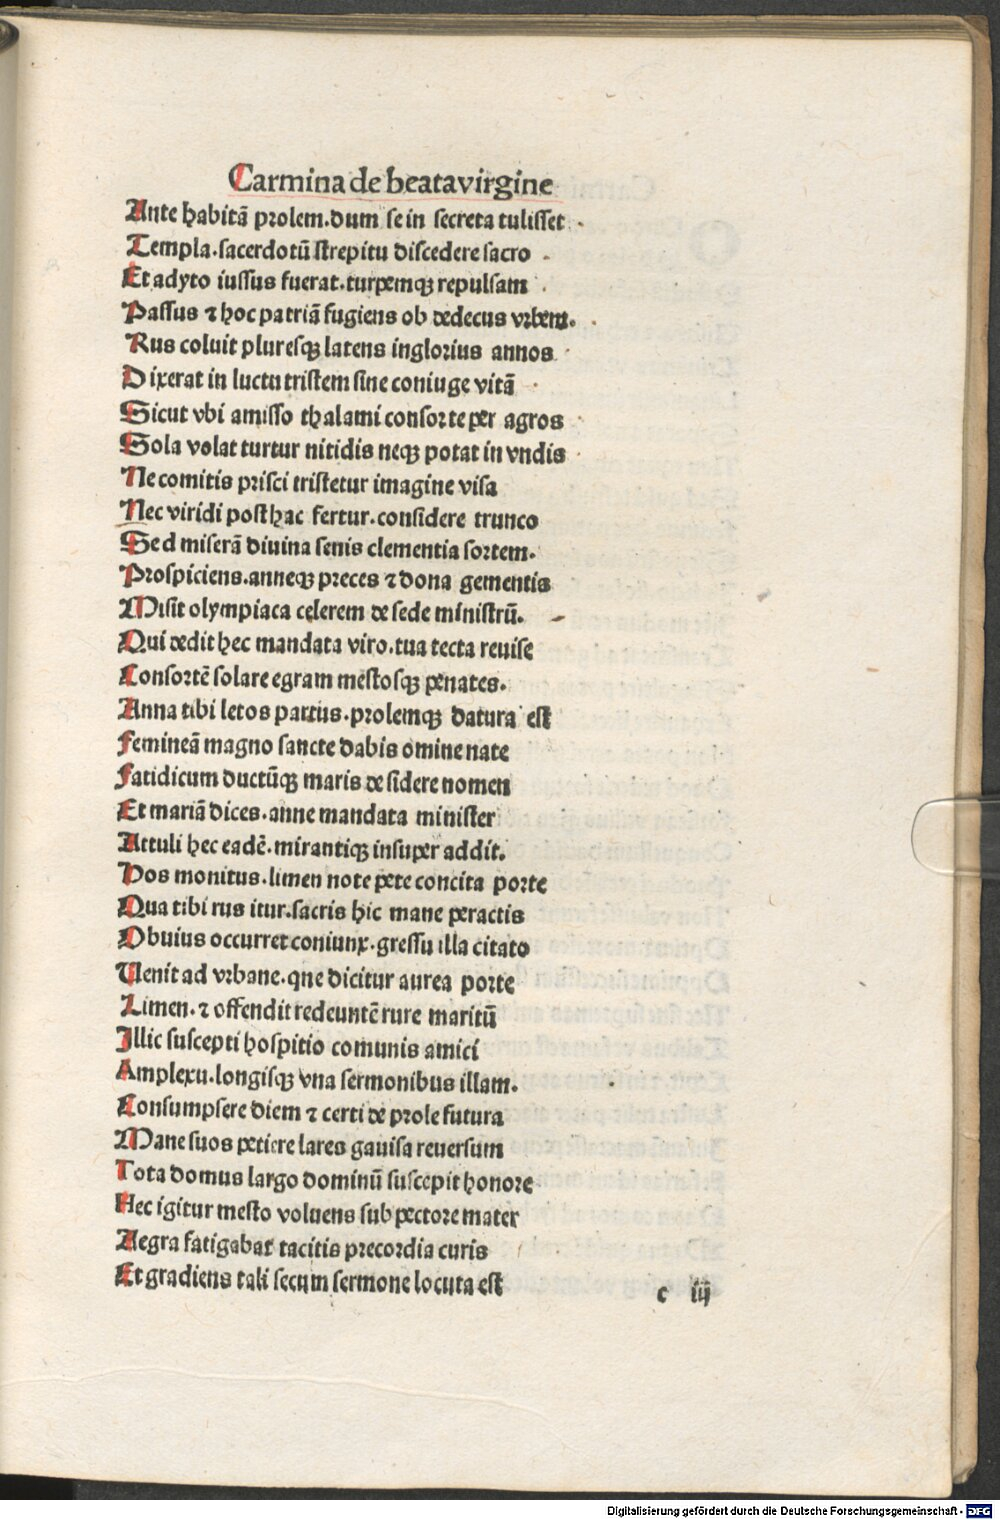 Carmina de beata virgine
Ante habitā prolem. dum se in secreta tulisset
Templa. sacerdotū strepitu discedere sacro
Et adyto iussus fuerat. turpemqꝫ repulsam
Passus ⁊ hoc patriā fugiens ob dedecus vrbem.
Rus coluit pluresqꝫ latens inglorius annos
Dixerat in luctu tristem sine coniuge vitā
Sicut vbi amisso thalami consorte per agros
Sola volat turtur nitidis neqꝫ potat in vndis
Ne comitis prisci tristetur imagine visa
Nec viridi posthac fertur. considere trunco
Sed miserā diuina senis clementia sortem.
Prospiciens. anneqꝫ preces ⁊ dona gementis
Misit olympiaca celerem de sede ministrū.
Qui dedit hec mandata viro. tua tecta reuise
Consortē solare egram mestosqꝫ penates.
Anna tibi letos partus. prolemqꝫ datura est
Femineā magno sancte dabis omine nate
Fatidicum ductūqꝫ maris de sidere nomen
Et mariā dices. anne mandata minister
Attuli hec eadē. mirantiqꝫ insuper addit.
Hos monitus. limen note pete concita porte
Qua tibi rus itur. sacris hic mane peractis
Obuius occurret coniunx. gressu illa citato
Uenit ad vrbane. que dicitur aurea porte
Limen. ⁊ offendit redeuntē rure maritū
Illic suscepti hospitio comunis amici
Amplexu. longisqꝫ vna sermonibus illam.
Consumpsere diem ⁊ certi de prole futura
Mane suos petiere lares gauisa reuersum
Tota domus largo dominū suscepit honore
Hec igitur mesto voluens sub pectore mater
Aegra fatigabat tacitis precordia curis
Et gradiens tali secum sermone locuta est
c iij
Digitalisierung gefördert durch die Deutsche Forschungsgemeinschaft - DFG